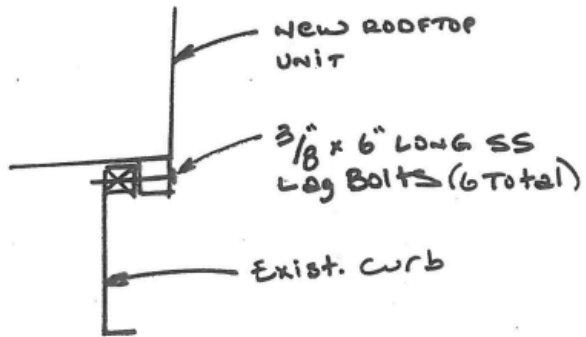 NEW ROOFTOP
UNIT
3/8" x 6" LONG SS
Lag Bolts (6 Total)
Exist. Curb